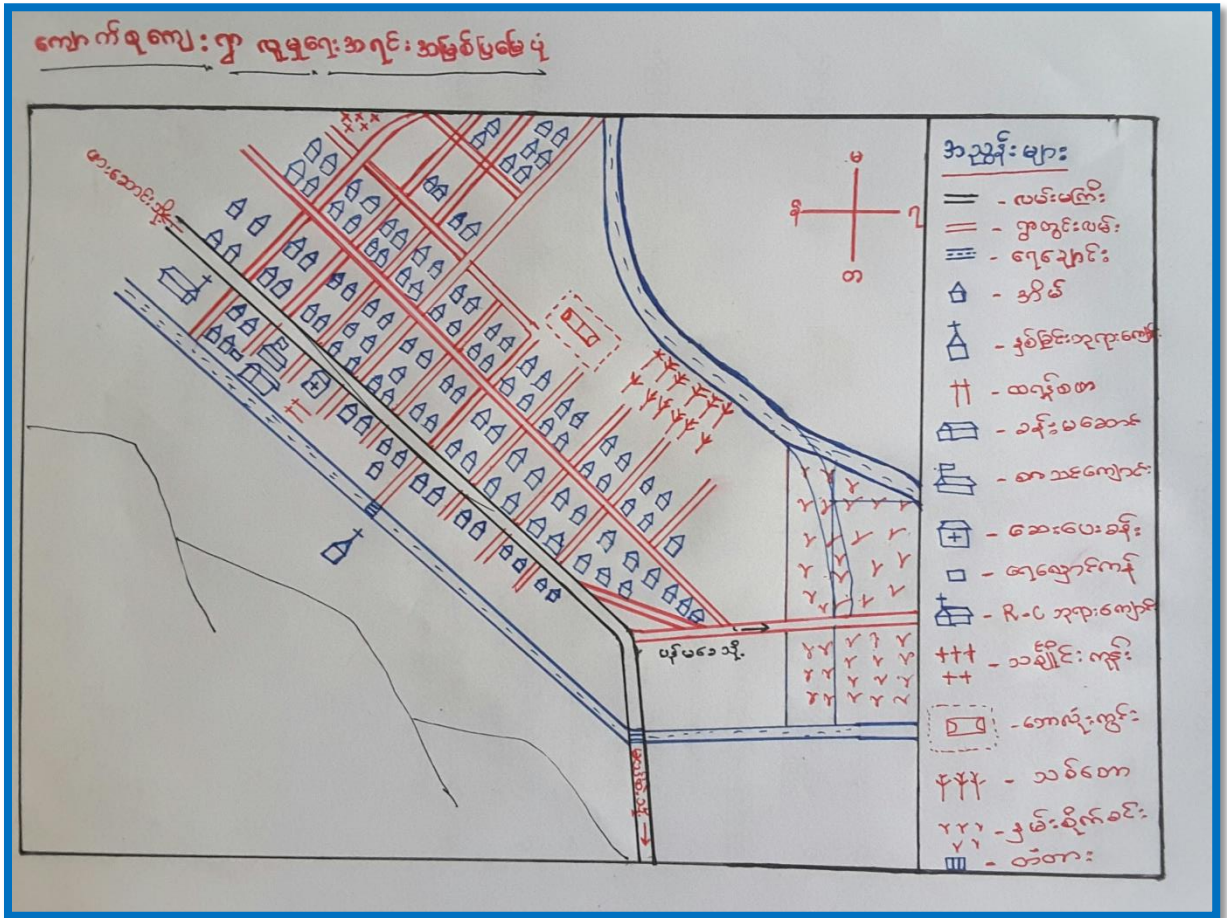 ကျောက်စုကျေးရွာ လူမှုရေးအရင်းအမြစ်ပြမြေပုံ
ဖားဆောင်းသို့
မ
န
တ
ပုန်မဒေသို့
အညွှန်းများ
- လမ်းမကြီး
- ရွာတွင်းလမ်း
- ရေချောင်း
- အိမ်
- နှစ်ခြင်းဘုရားကျောင်း
- ခန်းမဆောင်
- စာသင်ကျောင်း
- ဆေးပေးခန်း
- ရေလှောင်ကန်
- R-C ဘုရားကျောင်း
- သင်္ချိုင်းကုန်း
- ဘောလုံးကွင်း
- သစ်တော
- နှမ်းစိုက်ခင်း
- တံတား